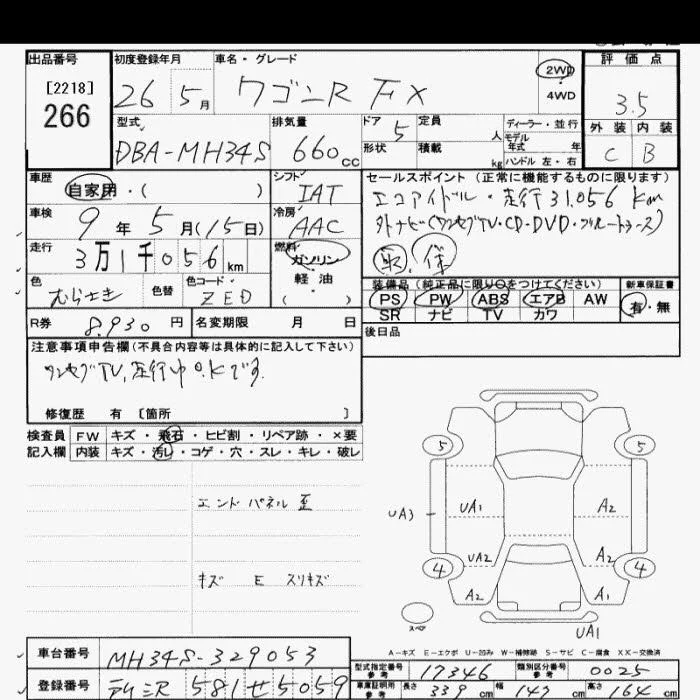 出品番号 [2218] 266
初度登録年月 26 5月
車名・グレード ワゴンR FX
2WD
4WD
評価点 3.5
外装 内装
C B
型式 DBA-MH34S
排気量 660cc
ドア 5
定員 人
形状
積載 kg
ディーラー・並行
モデル年式 年
ハンドル 左・右
車歴 自家用・( )
シフト IAT
車検 9年5月(15日)
冷房 AAC
走行 3万1千056km
燃料 ガソリン
軽油
( )
色 むらさき
色替
色コード ZED
R券 8.930円
名変期限 月 日
セールスポイント(正常に機能するものに限ります)
エコアイドル・走行31.056Km
外ナビ(ワンセグTV・CD・DVD・ブルートゥース)
取 保
装備品(純正品に限り○をつけてください)
PS PW ABS エアB AW
SR ナビ TV カワ
新車保証書
有・無
後日品
注意事項申告欄(不具合内容等は具体的に記入して下さい)
ワンセグTV,走行中O.Kです.
修復歴 有 [箇所 ]
検査員記入欄
FW キズ・飛石・ヒビ割・リペア跡・×要
内装 キズ・汚レ・コゲ・穴・スレ・キレ・破レ
エンドパネル歪
キズ E スリキズ
5 5
UA3 UA1 A2
UA2 A2
4 4
A2 A1
スペア
UA1
A-キズ E-エクボ U-凹み W-補修跡 S-サビ C-腐食 XX-交換済
車台番号 MH34S-329053
型式指定番号 参考 17346
類別区分番号 参考 0025
登録番号 581せ5059
車庫証明用 参考 長さ 339cm 幅 147cm 高さ 164cm